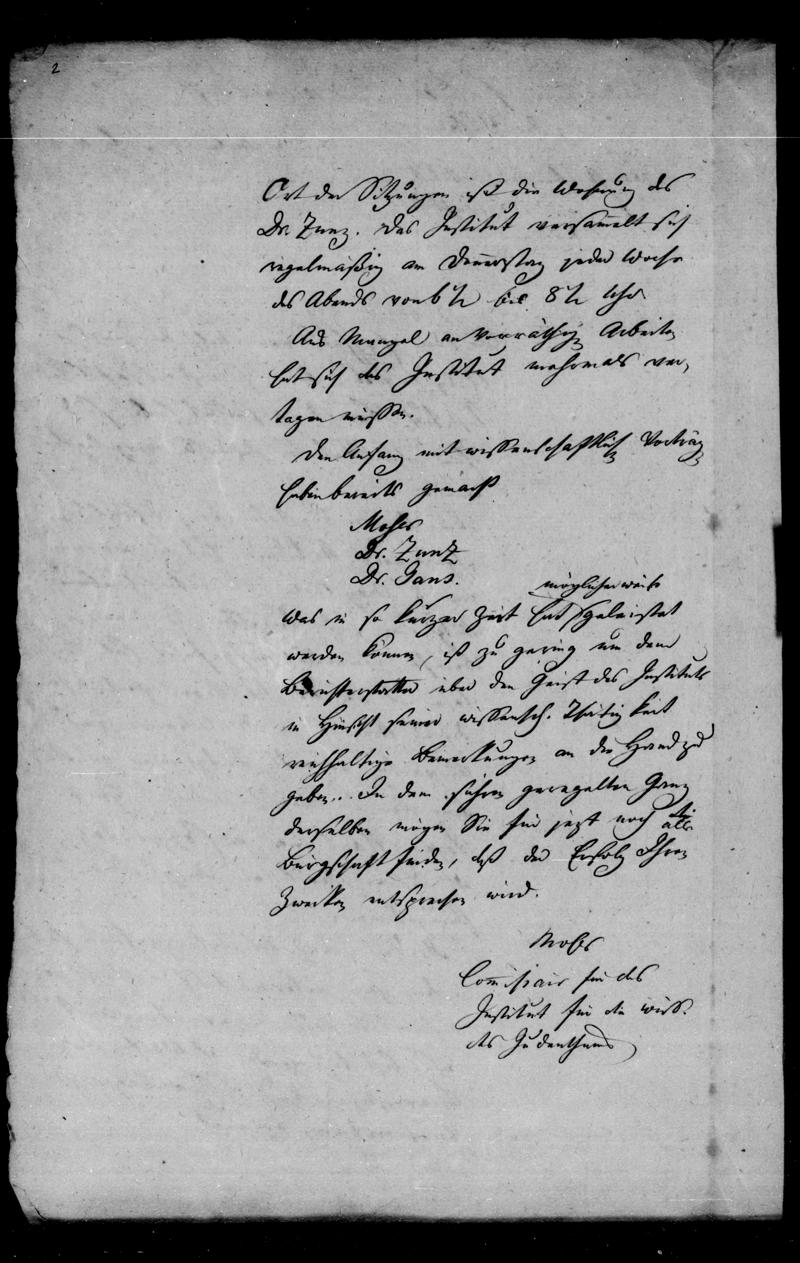 2
Ort der Sitzungen ist die Wohnung des
Dr. Zunz. Das Institut versammelt sich
regelmäßig am Donnerstag jeder Woche
des Abends von 6 ½ bis 8 ½ Uhr
Aus Mangel an vorräthig Arbeiten
hat sich das Institut mehrmals ver-
tagen müssen.
Den Anfang mit wissenschaftlich Vorträg
haben bereits gemacht
Moser
Dr. Zunz
Dr. Gans.
möglicherweise
Was in so kurzer Zeit hat geleistet
werden können, ist zu gering um dem
Berichterstatter über den Geist des Instituts
in Hinsicht seiner wissensch. Thätigkeit
reichhaltige Bemerkungen an die Hand zu
geben. In dem sichern geregelten Gang
derselben mögen Sie für jetzt noch die
Bürgschaft finden, daß der Erfolg Ihren
Zwecken entsprechen wird.
Moser
Commissair für das
Institut für die Wiss.
des Judenthums